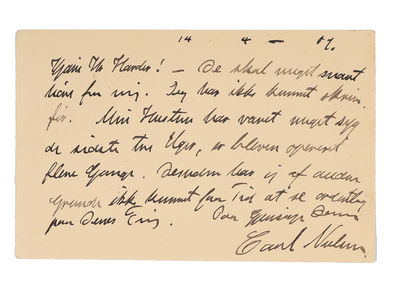 14 4 — 07.
Kjære Hr Harder! — De skal meget snart
høre fra mig. Jeg har ikke kunnet skrive
før. Min Hustru har været meget syg
de sidste tre Uger, er bleven opereret
flere Gange. Desuden har jeg af andre
Grunde ikke kunnet faa Tid at se ordentlig
paa Deres Ting. Deres
Carl Nielsen